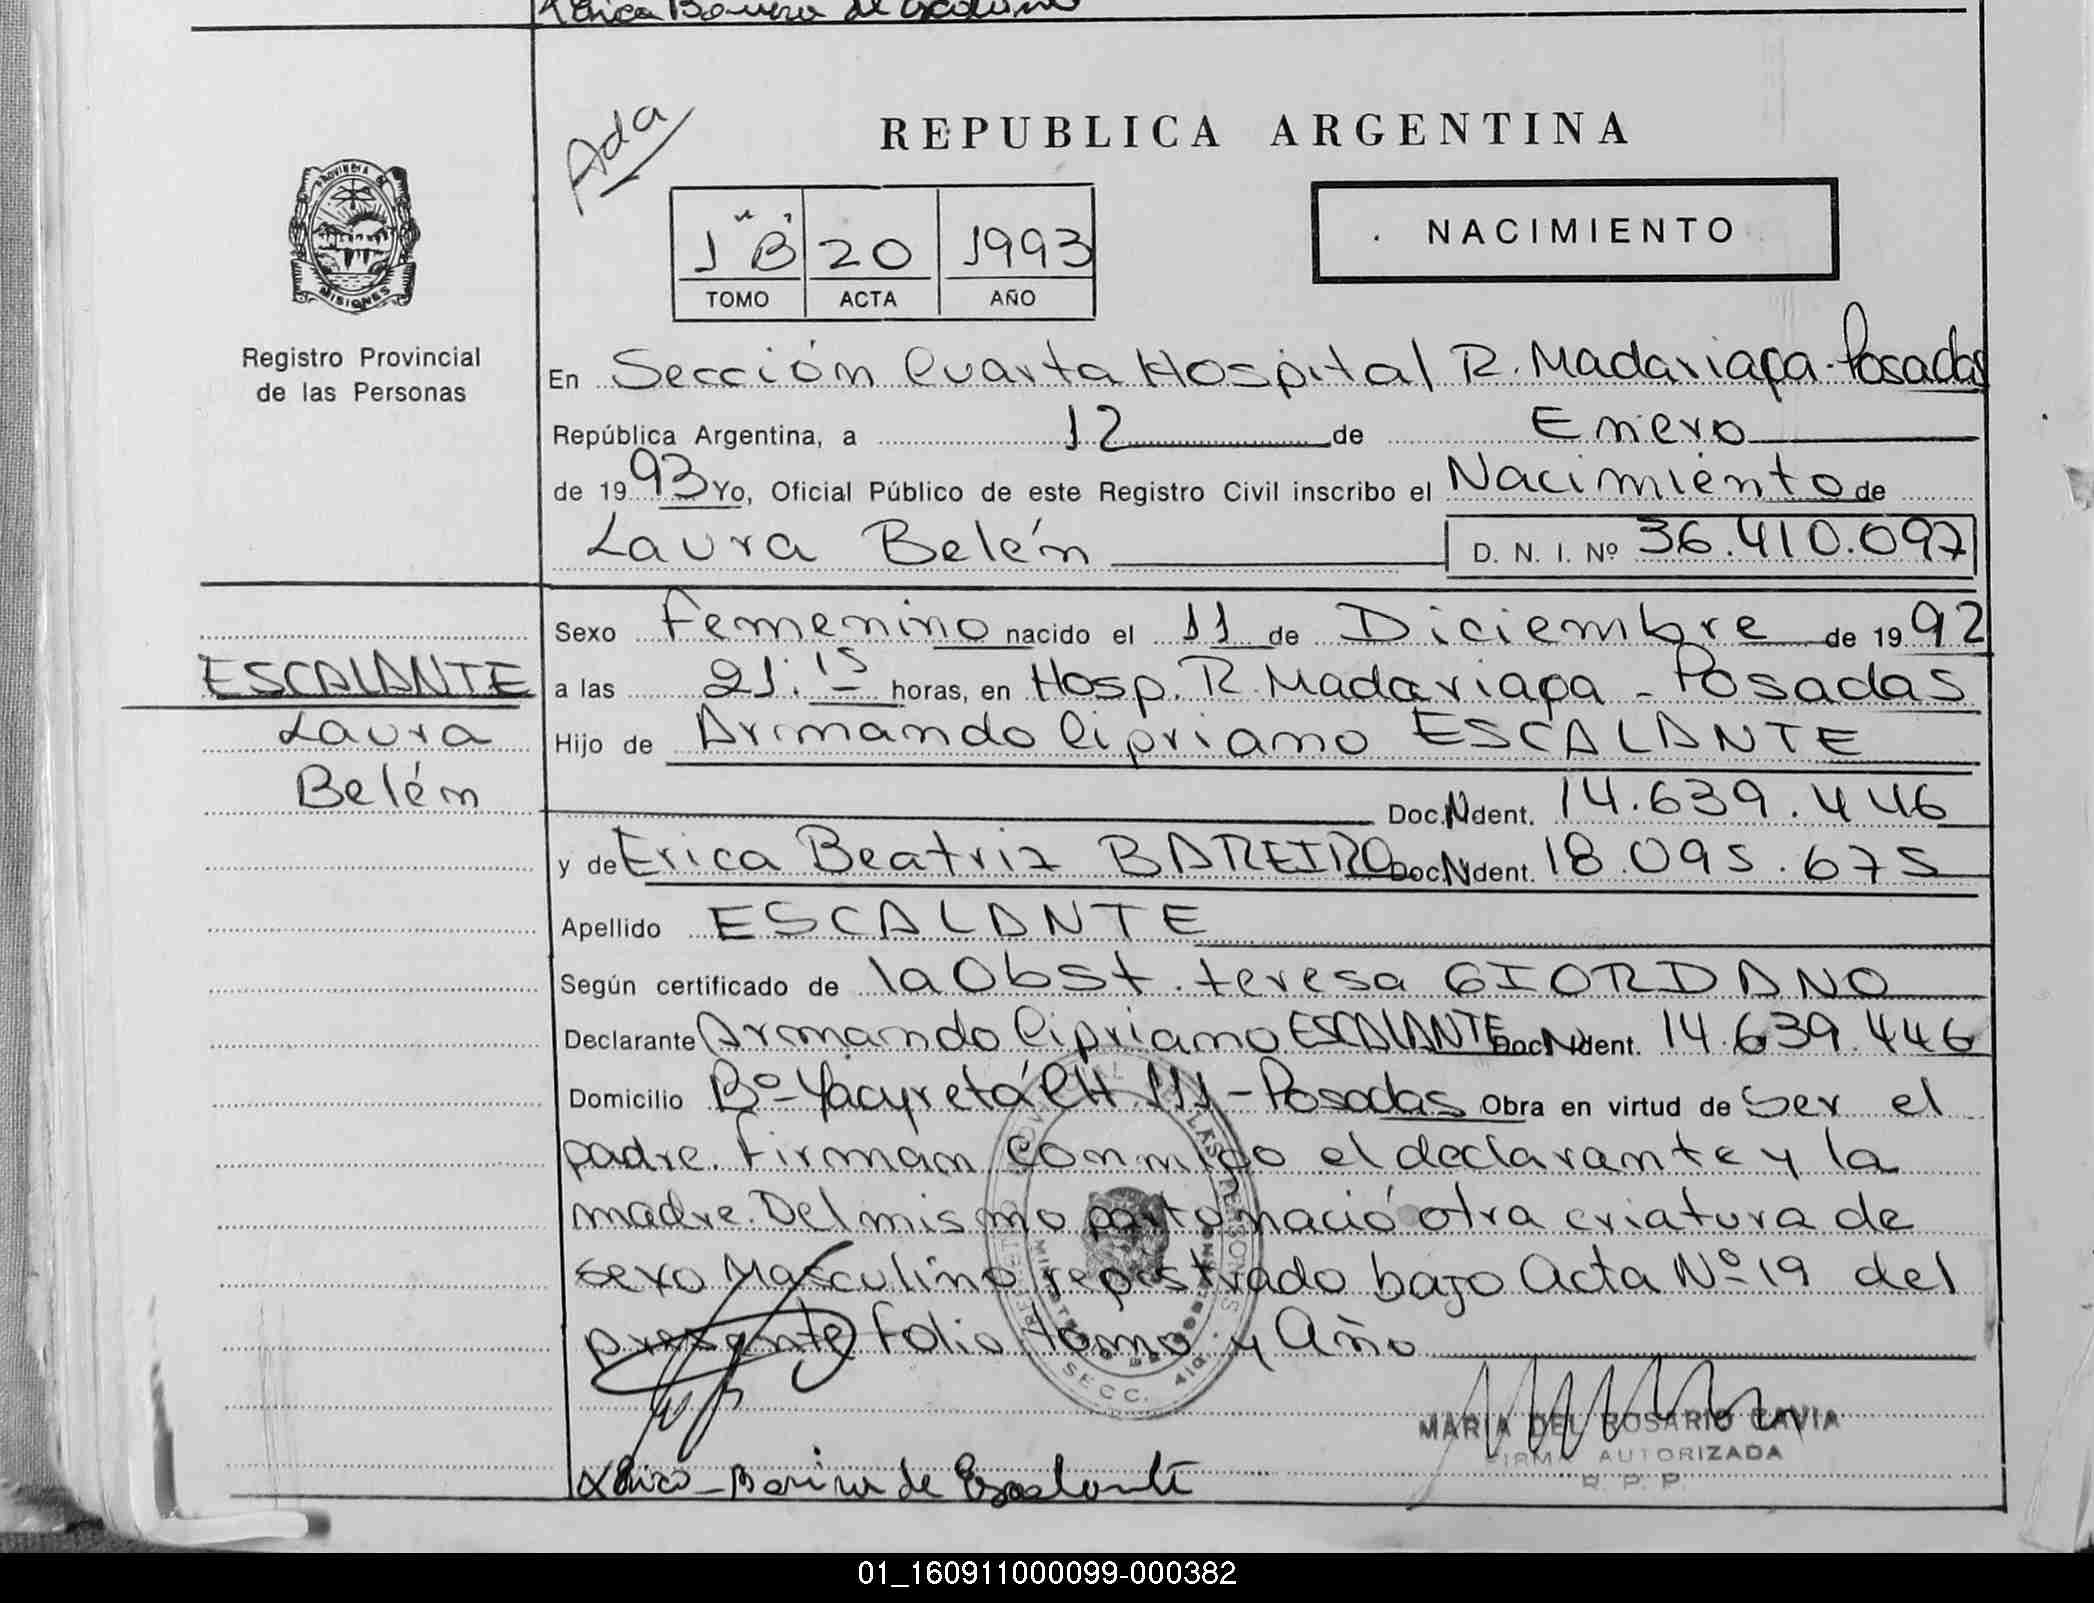 Erica Bareiro de Escalante
Ada
REPUBLICA ARGENTINA
PROVINCIA DE
MISIONES
1 "B" 20 1993
TOMO ACTA AÑO
NACIMIENTO
Registro Provincial
de las Personas
En Sección Cuarta Hospital R. Madariaga-Posadas
República Argentina, a 12 de Enero
de 1993 Yo, Oficial Público de este Registro Civil inscribo el Nacimiento de
Laura Belén D. N. I. Nº 36.410.097
Sexo Femenino nacido el 11 de Diciembre de 1992
ESCALANTE
Laura
Belén
a las 21:15 horas, en Hosp. R. Madariaga - Posadas
Hijo de Armando Cipriano ESCALANTE
Doc. N dent. 14.639.446
y de Erica Beatriz BAREIRO Doc. N dent. 18.095.675
Apellido ESCALANTE
Según certificado de la Obst. teresa GIORDANO
Declarante Armando Cipriano ESCALANTE Doc. N dent. 14.639.446
Domicilio Bº Yacyretá CH 111 - Posadas Obra en virtud de Ser el
padre. Firman conmigo el declarante y la
madre. Del mismo parto nació otra criatura de
sexo Masculino registrado bajo Acta Nº 19 del
presente folio tomo y Año
SECC. 4ta.
MARIA DEL ROSARIO CAVIA
FIRMA AUTORIZADA
R. P. P.
Erica Bareiro de Escalante
01_160911000099-000382